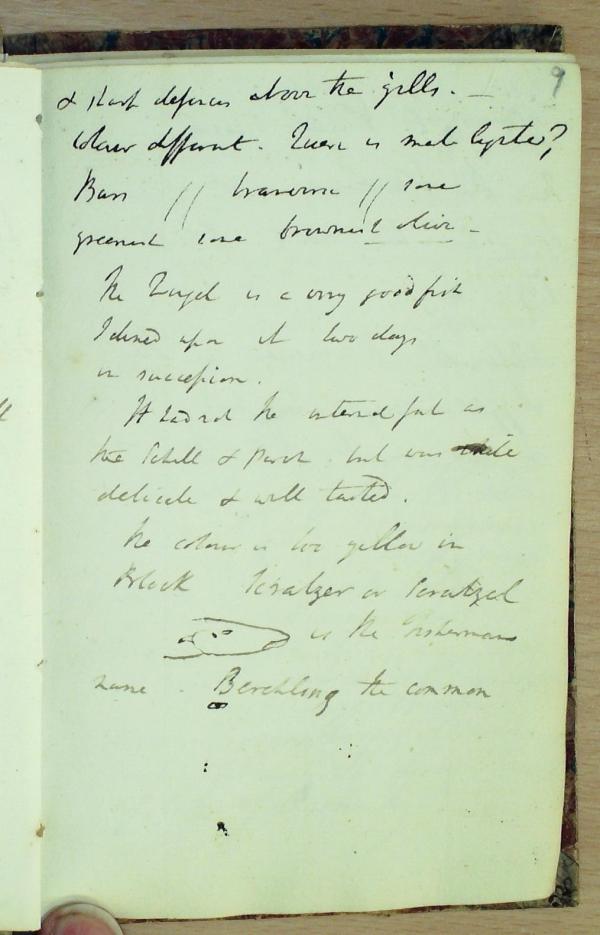 9
& sharp defences above the gills. —
Colour different. Quere is male Cyrste?
Bars // transverse // some
greenish some brownish olive —
The Zingel is a very good fish
I dined upon it two days
in succession.
It had not the intend fat as
the Schill & perch but was white
delicate & well tasted.
The colour is too yellow in
Block Schratzer or Scratzel
is the fishermans
name . Berchling the common